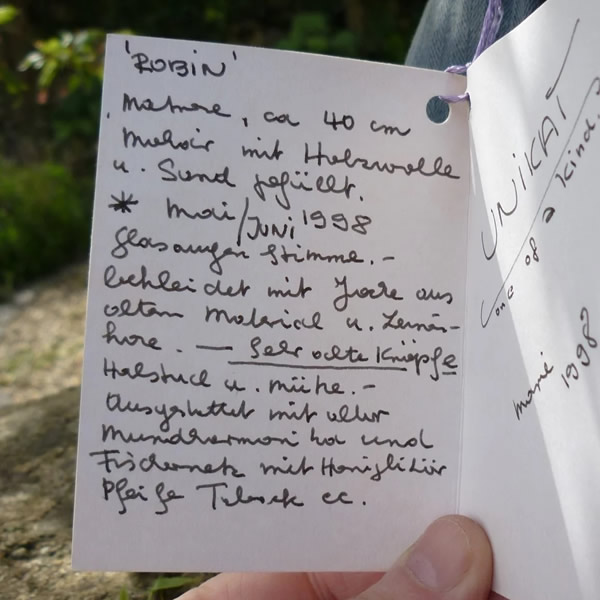 'ROBIN'
Matrose, ca 40 cm
Mohair mit Holzwolle
u. Sand gefüllt.
* Mai/JUNI 1998
Glasaugen Stimme.-
bekleidet mit Jacke aus
altem Material u.
hose. — Sehr alte Knöpfe
Halstuch u. Mütze.-
Ausgestattet mit alter
Mundharmonika und
Fischernetz mit
Pfeife Tabak ec.
UNIKAT
(one of a kind.)
1998